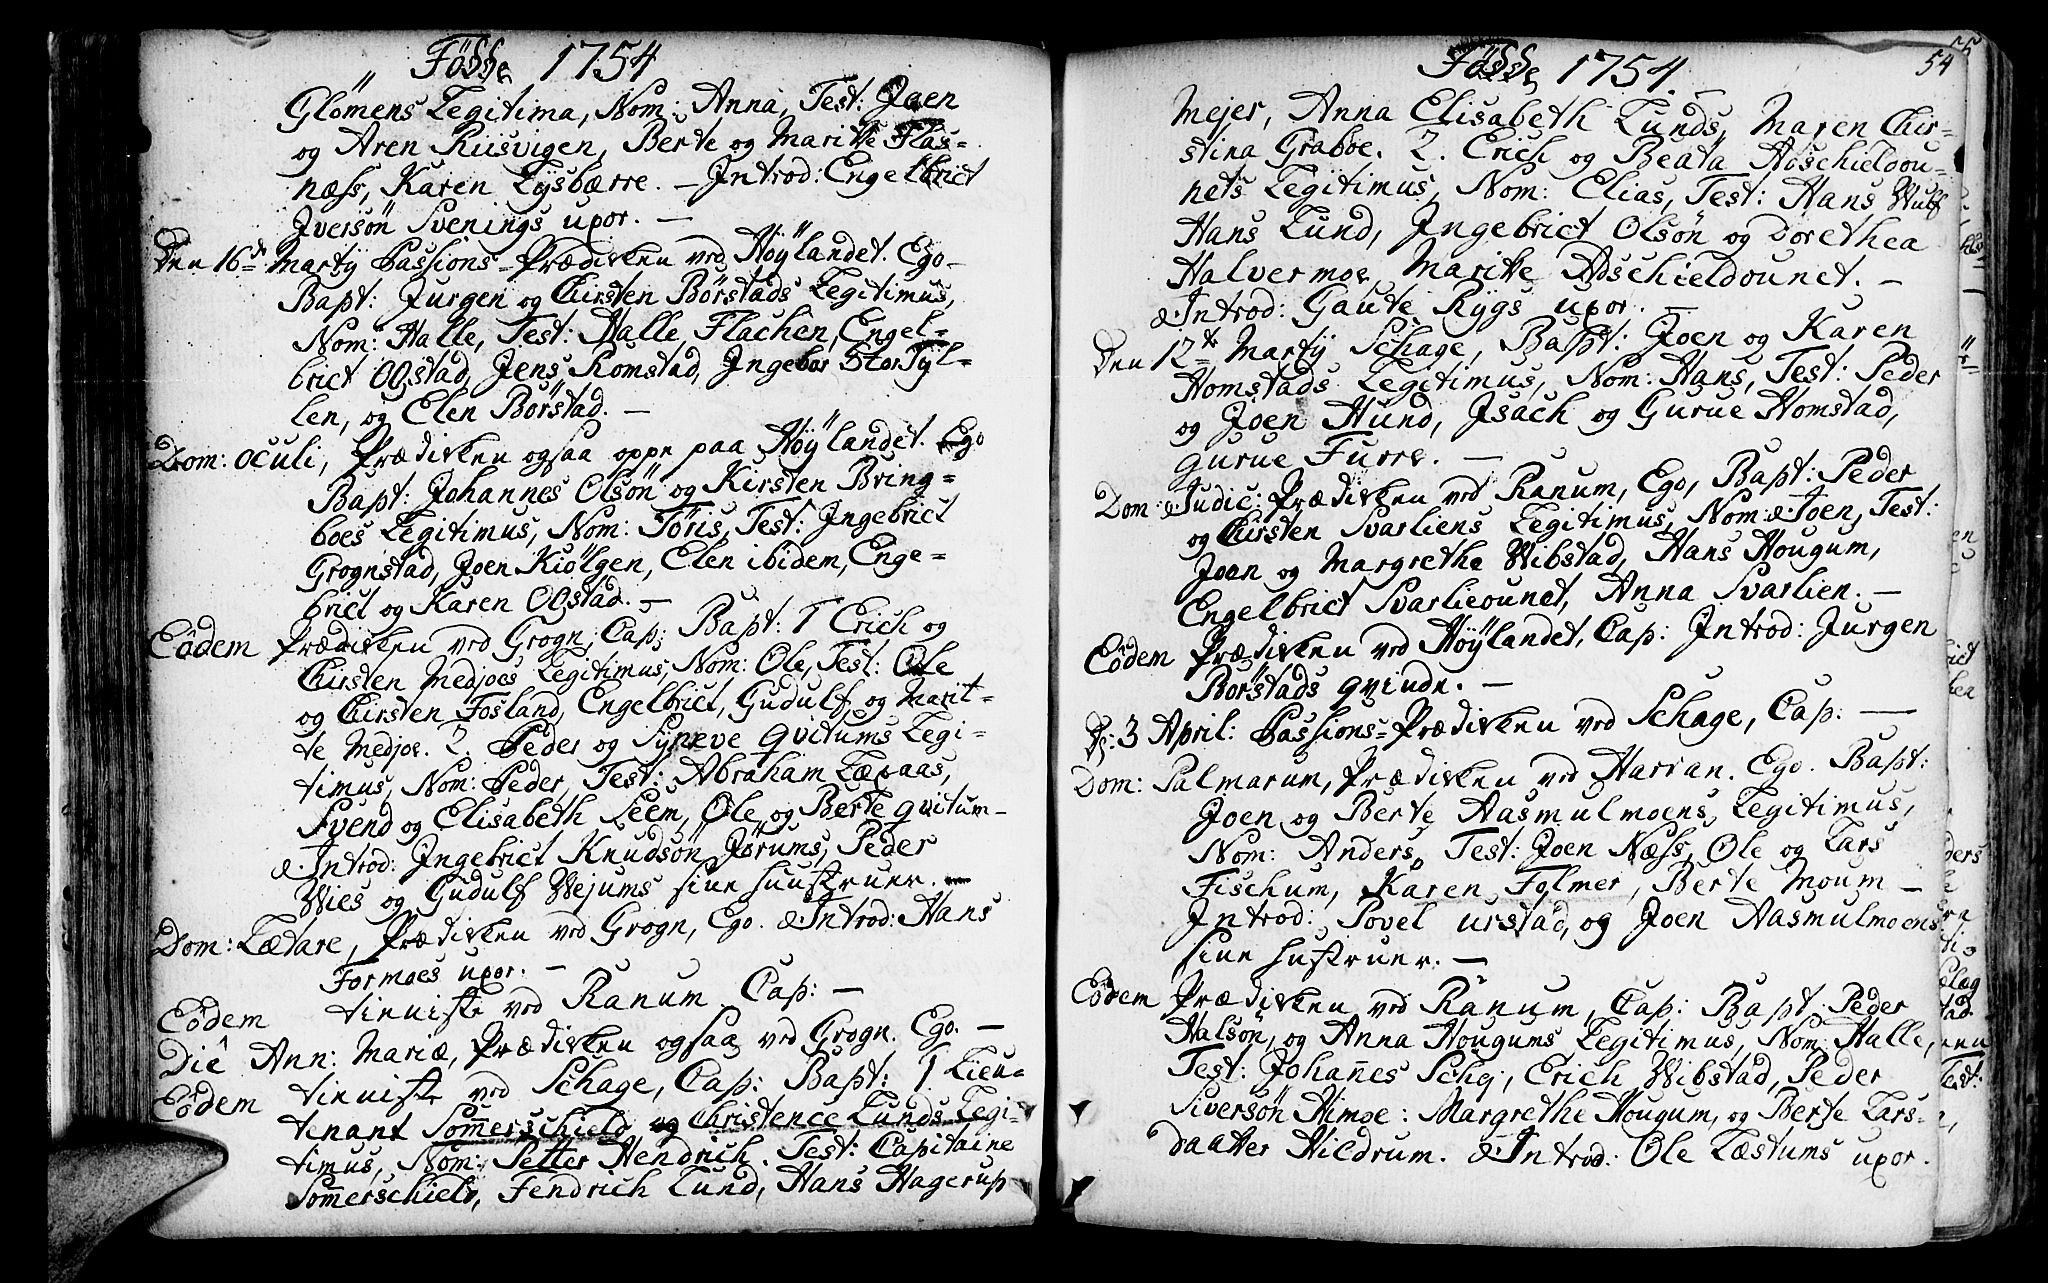 Födde 1754
Glömens Legitima, Nom: Anna, Test: Joen
og Aren Riisvigen, Berte og Maritte Flas-
næss, Karen Lysbærre. — Introd: Engelbrict
Iversön Svenings uxor. —
Den 16de Martij Passions-Prædiken ved Höÿlandet. Ego
Bapt: Jurgen og Chirsten Börstads Legitimus,
Nom: Halle, Test: Halle Flachen, Engel-
brict OOstad, Jens Romstad, Ingebor StorTÿl-
len, og Elen Börstad. —
Dom: oculi, Prædiken ogsaa oppe paa Höÿlandet. Ego
Bapt: Johannes Olsön og Kirsten Bring-
boes Legitimus, Nom: Töris, Test: Ingebrict
Grognstad, Joen Kiölgen, Elen ibidem, Enge-
brict og Karen OOstad. —
Eödem Prædiken ved Grogn; Cap: Bapt: 1 Erich og
Chirsten Medjoes Legitimus, Nom: Ole, Test: Ole
og Chirsten Fosland, Engelbrict, Gudulf og Marit-
te Medjoe. 2. Peder og Syneve Qvitums Legi-
timus, Nom: Peder, Test: Abraham Læpaas,
Svend og Elisabeth Seem, Ole og Berte Qvitum-
Introd: Ingebrict Knudsön Jörums, Peder
Wies og Gudulf Wejums sine huustruer.
Dom: Lætare, Prædiken ved Grogn, Ego. Introd: Hans
Formoes uxor. —
Eödem tieniste ved Ranum Cap: —
Die Ann: Mariæ, Prædiken ogsaa ved Grogn. Ego. —
Eödem tieniste ved Schage, Cap: Bapt: 1 Lieu-
tenant Somerschield og Christence Lunds Legi-
timus, Nom: Petter Hendrich. Test: Capitaine
Somerschield, Fendrich Lund, Hans Hagerup
Födde 1754.
54
55
Mejer, Anna Elisabeth Lunds, Maren Chir-
stina Graboe. 2. Erich og Beata Adschieldou-
nets Legitimus, Nom: Elias, Test: Hans Wulf
Hans Lund, Ingebrict Olsön og Dorethea
Halvermoe, Maritte Adschieldounet. —
Introd: Gaute Rygs uxor. —
Den 12te Martij Schage, Bapt: Joen og Karen
Homstads Legitimus, Nom: Hans, Test: Peder
og Joen Hund, Isach og Gurue Homstad,
Gurue Furre. —
Dom: Judic: Prædiken ved Ranum, Ego, Bapt: Peder
og Chirsten Svarliens Legitimus, Nom: Joen, Test:
Joen og Margrethe Wibstad, Hans Hougum,
Engelbrict Svarlieounet, Anna Svarlien. —
Eödem Prædiken ved Höÿlandet, Cap: Introd: Jurgen
Borstads qvinde. —
D: 3 April: Passions-Prædiken ved Schage, Cap: —
Dom: Palmarum, Prædiken ved Harran. Ego. Bapt:
Joen og Berte Aasmulmoens Legitimus,
Nom: Anders, Test: Joen Næss, Ole og Lars
Fischum, Karen Folmer, Berte Moum —
Introd: Povel Urstad, og Joen Aasmulmoens
sine hustruer. —
Eödem Prædiken ved Ranum, Cap: Bapt: Peder
Halsön, og Anna Hougums Legitimus, Nom: Halle,
Test: Johan̄es Schej, Erich Wibstad, Peder
Siversön Himoe: Margrethe Hougum, og Berte Lars-
daatter Hildrum. Introd: Ole Læstums uxor.